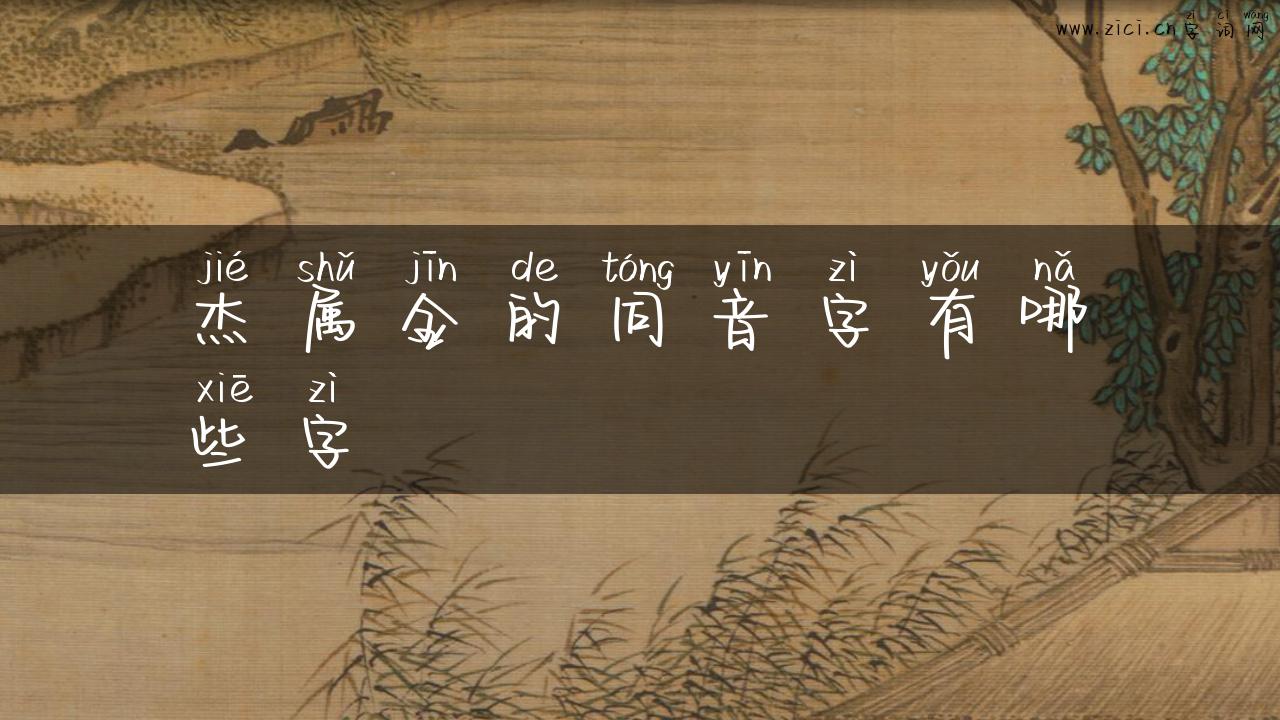 zì cí wǎng
www.zici.cn字词网
jié shǔ jīn de tóng yīn zì yǒu nǎ
杰属金的同音字有哪
xiē zì
些字